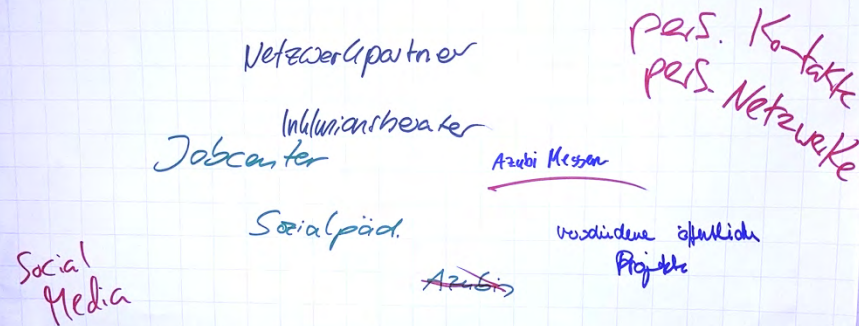 Netzwerkpartner
pers. Kontakte
pers. Netzwerke
Inklusionsberater
Jobcenter
Azubi Messen
Sozialpäd.
verschiedene öffentlich
Projekte
Social
Media
Azubis